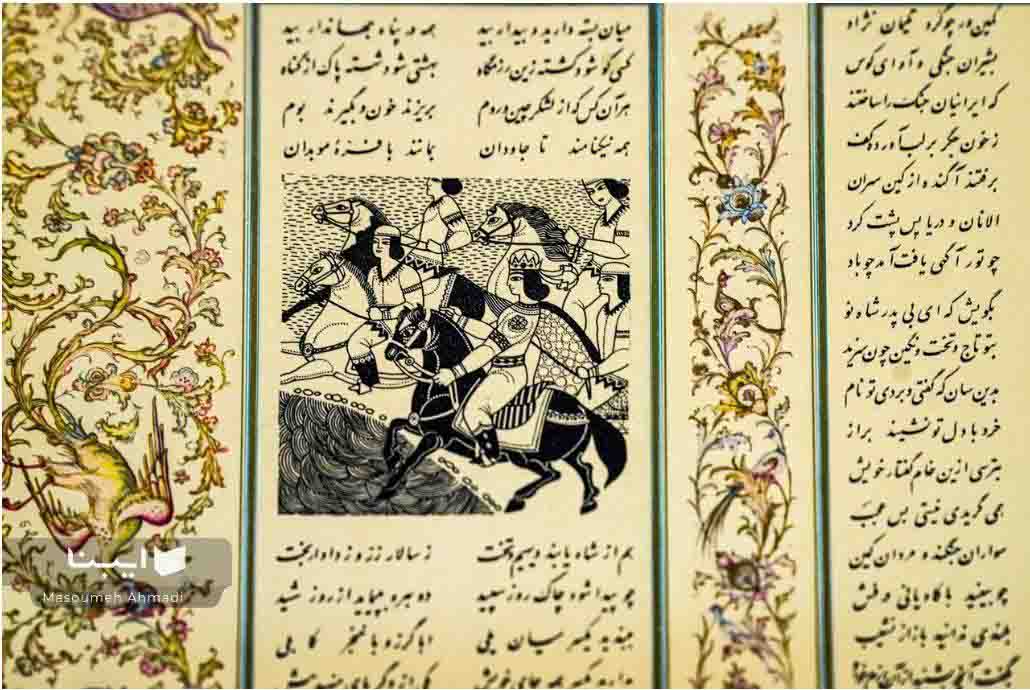 کمین ور چو گرد تلیمان نژاد
بشیران جنگی و آوای کوس
که ایرانیان جنگ را ساختند
ز خون جگر بر لب آورده کف
برفتند آگنده از کین سران
الانان و دریا پس پشت کرد
چو تور آگهی یافت آمد چو باد
بگویش که ای بی پدر شاه نو
بتو تاج و تخت و نگین چون سزید
بدین سان که گفتی و بردی تو نام
خرد با دل تو نشیند براز
بترسی ازین خام گفتار خویش
همی گریدی نیستی بس عجب
سواران جنگند و مردان کین
چو بینید با کاویانی درفش
بلندی ندانید باز از نشیب
بگفت آنچه بشنید از آن رزم
میان بسته دارید و بیدار بید همه در پناه جهاندار بید
کسی کو شود کشته زین رزمگاه بهشتی شود شسته پاک از گناه
هر آن کس که از لشکر چین و روم بریزند خون و بگیرند بوم
همه نیکنامند تا جاودان بمانند با فره موبدان
هم از شاه یابند دیهیم و تخت ز سالار زر و ز دادار بخت
چو پیدا شود چاک روز سپید دو بهره بپیاید از روز شید
ببندید یکسر میان یلی ابا گرز و با خنجر کابلی
بدارید یکسر همه جای خویش یکی از دگر پای منهید پیش
ایبنا
Masoumeh Ahmadi